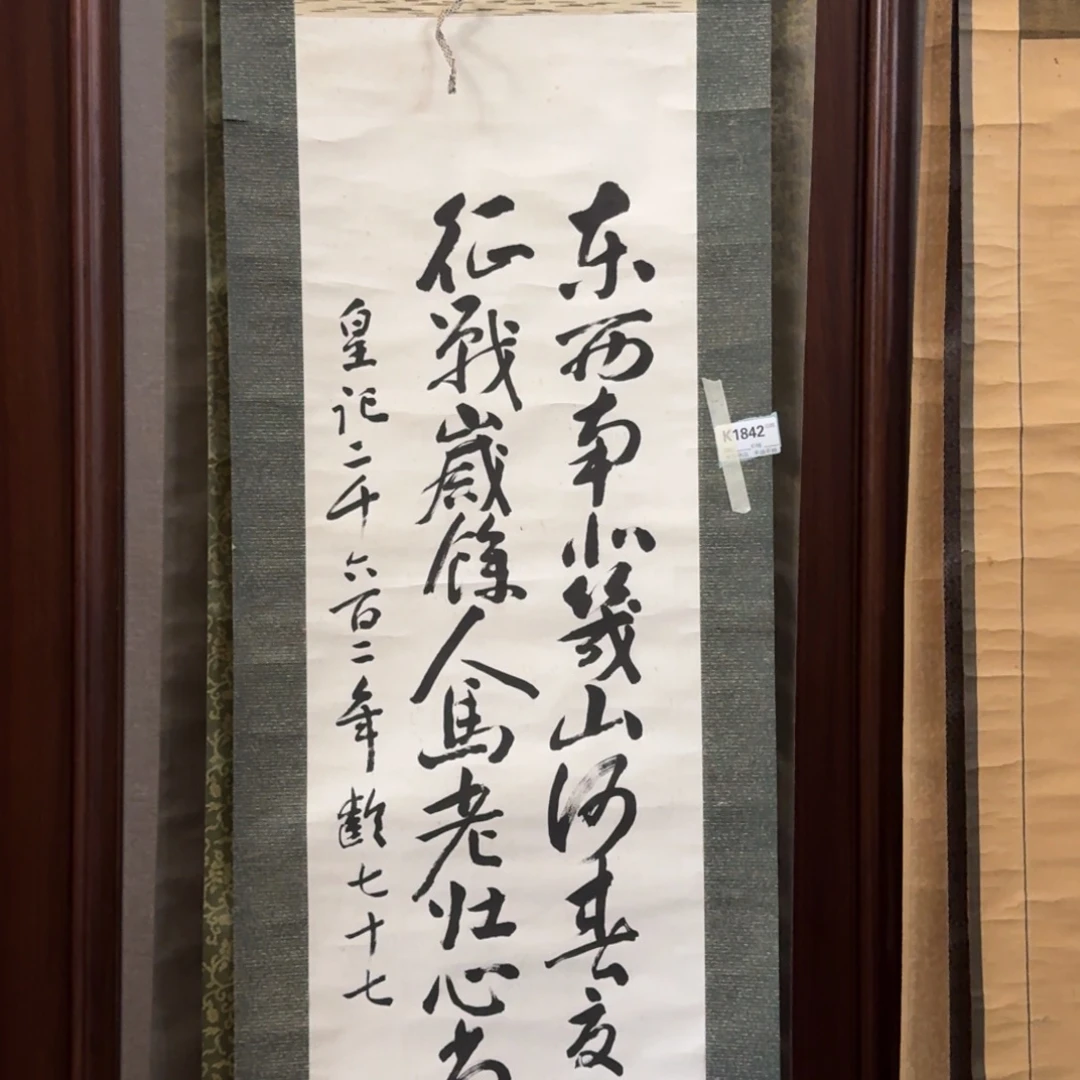 东西南北幾山河春夏
征戰歲餘人馬老壮心尚
皇記二千六百二年齡七十七
K1842